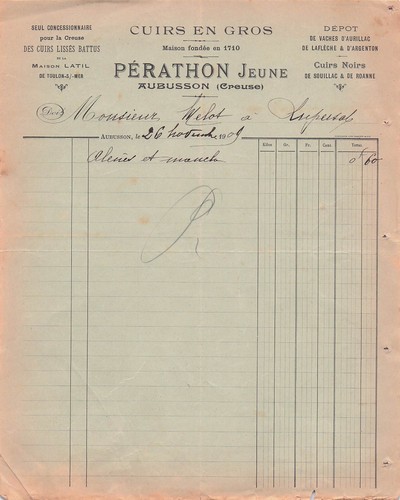 SEUL CONCESSIONNAIRE
pour la Creuse
DES CUIRS LISSÉS BATTUS
de la
MAISON LATIL
DE TOULON-S/-MER
CUIRS EN GROS
Maison fondée en 1710
PÉRATHON JEUNE
AUBUSSON (Creuse)
DÉPOT
DE VACHES D'AURILLAC
DE LAFLÈCHE & D'ARGENTON
Cuirs Noirs
DE BOUILLAC & DE ROANNE
Doit Monsieur Melot à Lupersat
AUBUSSON, le 26 novembre 1909
Kilos Gr. Fr. Cent. Total
Alênes et manche 0f 60